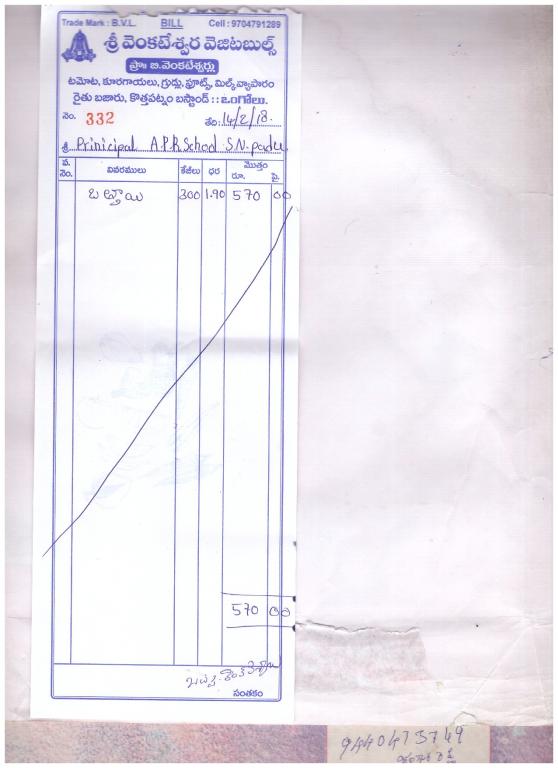 Trade Mark : B.V.L. BILL Cell : 9704791289
శ్రీ వెంకటేశ్వర వెజిటబుల్స్
ప్రొః బి.వెంకటేశ్వర్లు
టమోట, కూరగాయలు, గ్రుడ్లు, ఫ్రూట్స్, మిల్క్‌వ్యాపారం
రైతు బజారు, కొత్తపట్నం బస్టాండ్ :: ఒంగోలు.
నెం. 332 తేది: 14/2/18.
శ్రీ Prinicipal A.P.R School S.N. padu
వ. నెం. వివరములు కేజీలు ధర మొత్తం రూ. పై.
బత్తాయి 300 1.90 570 00
570 00
సంతకం
9440473749